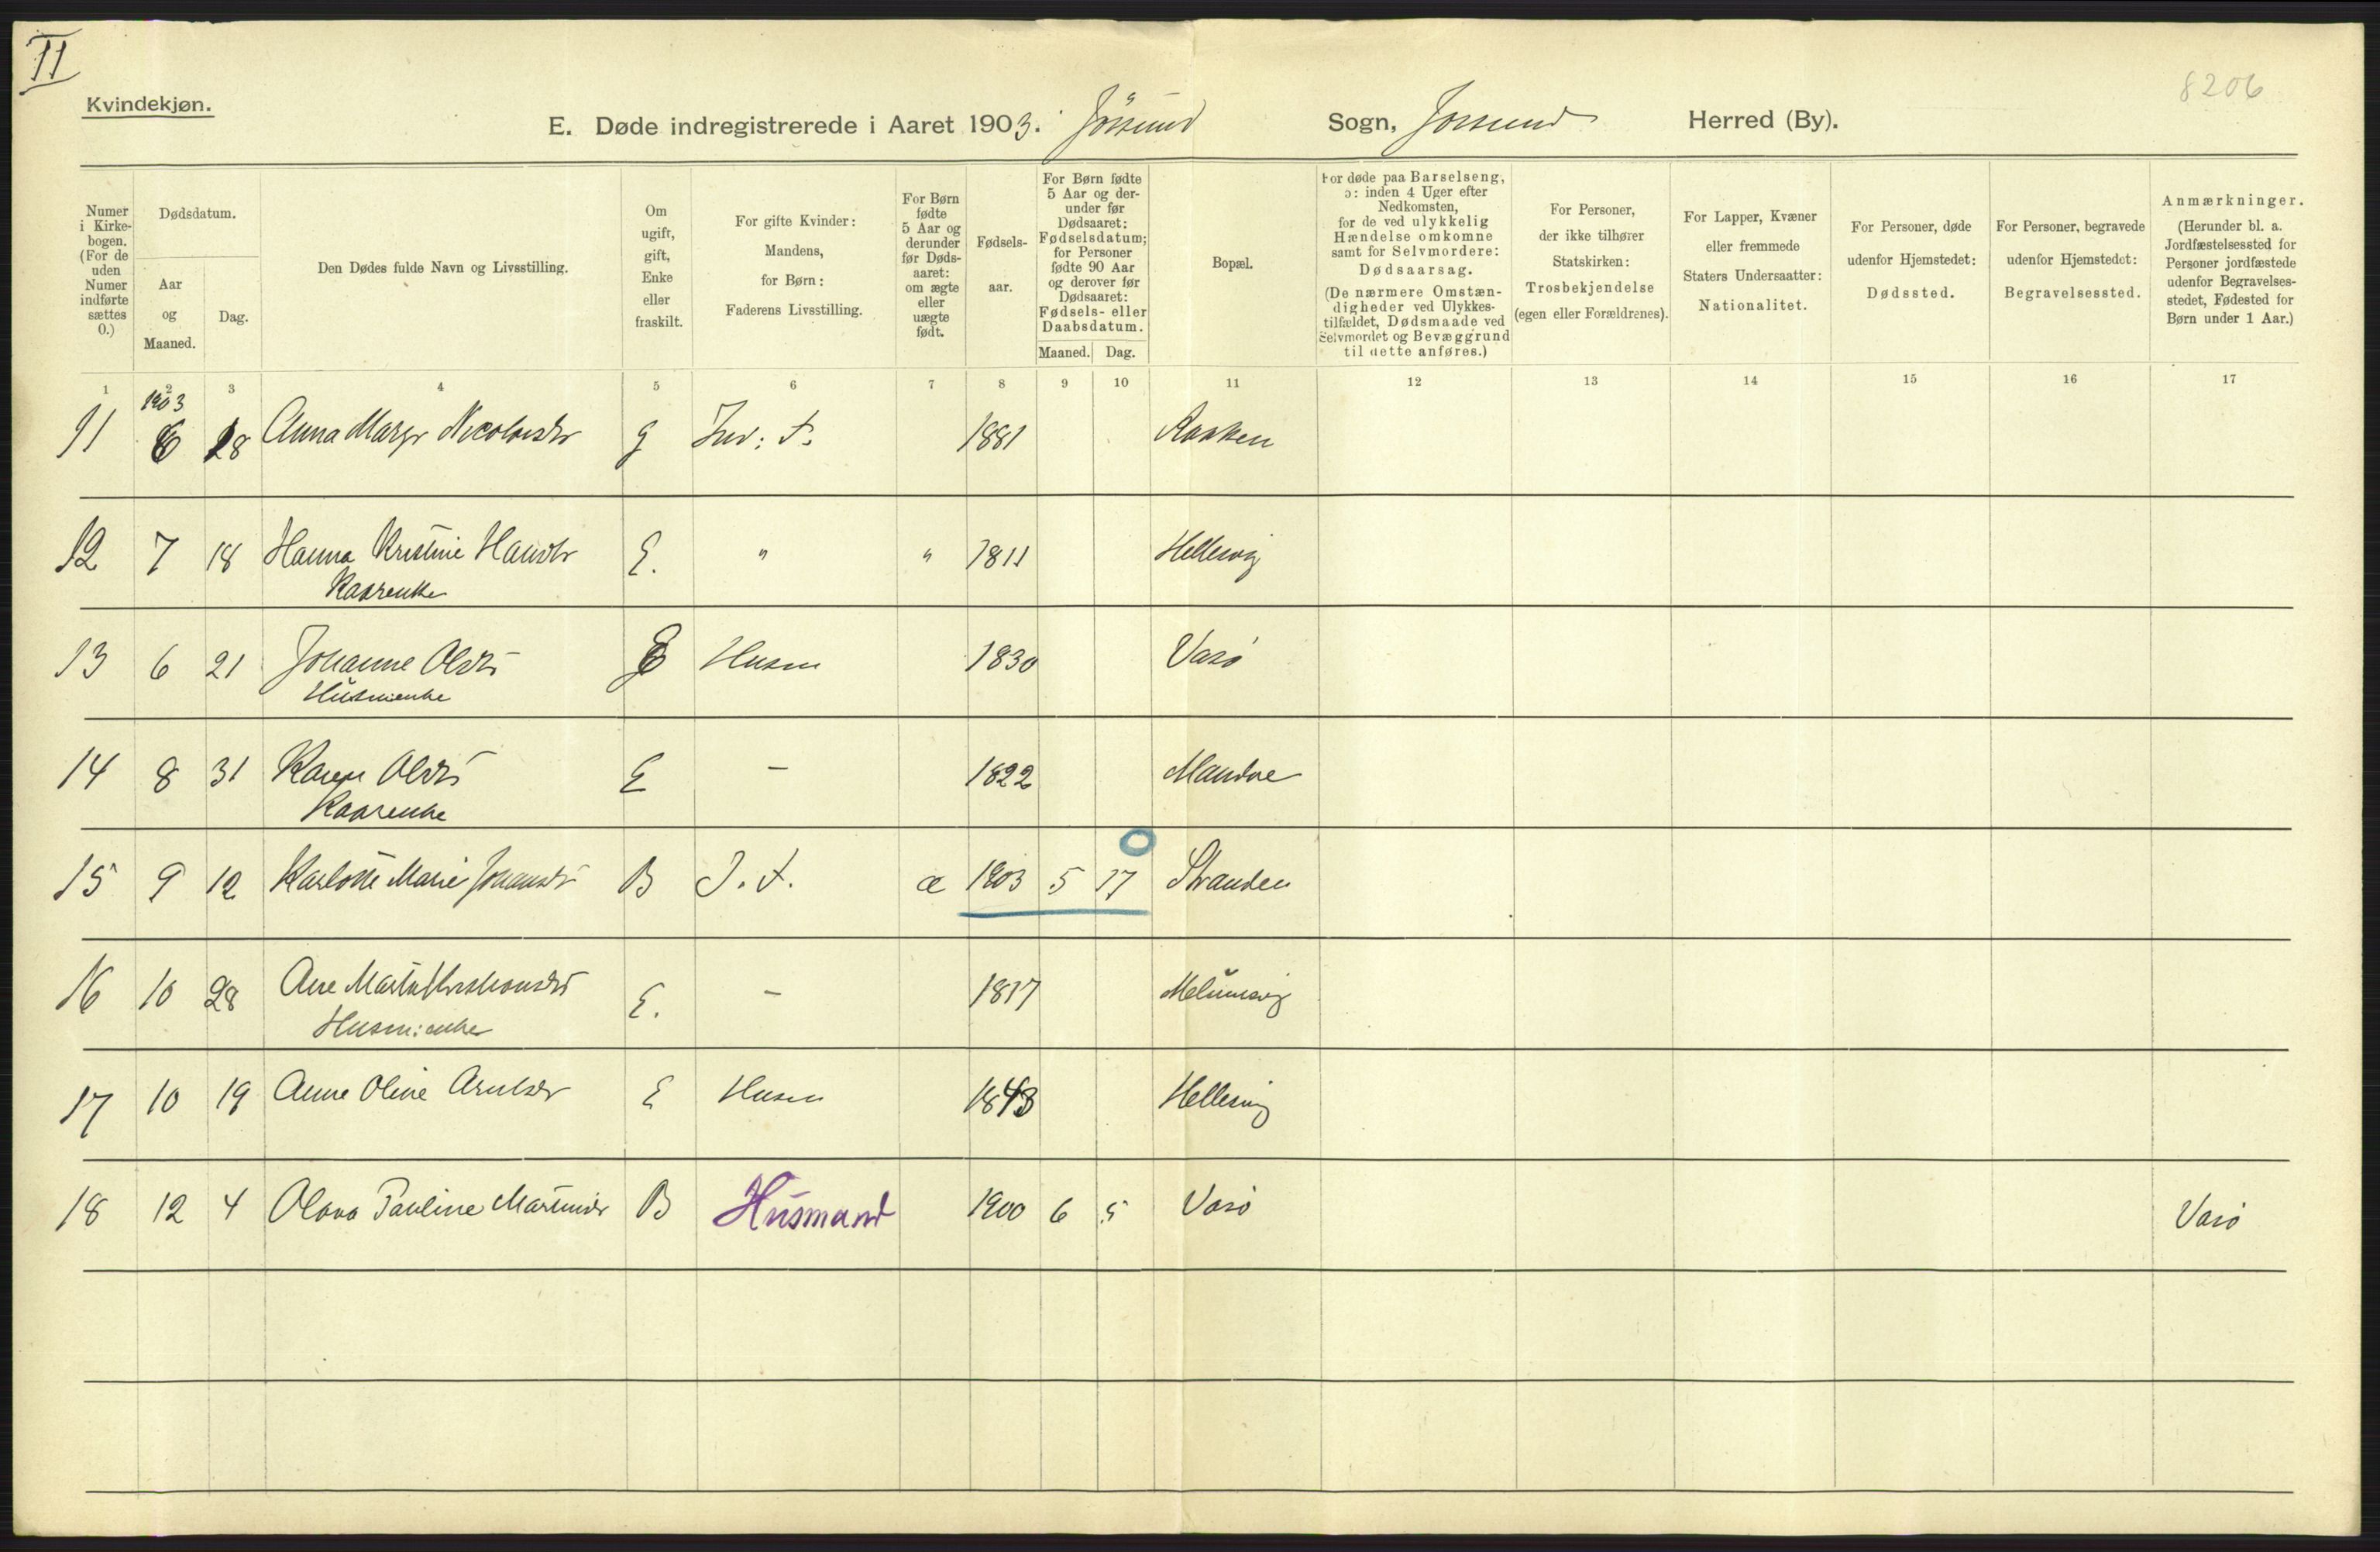 II
8206
Kvindekjøn.
E. Døde indregistrerede i Aaret 1903. Jössund Sogn, Jossund Herred (By).
Numer i Kirke-bogen. (For de uden Numer indførte sættes 0.)
Dødsdatum.
Aar og Maaned.
Dag.
Den Dødes fulde Navn og Livsstilling.
Om ugift, gift, Enke eller fraskilt.
For gifte Kvinder: Mandens, for Børn: Faderens Livsstilling.
For Børn fødte 5 Aar og derunder før Døds-aaret: om ægte eller uægte født.
Fødsels-aar.
For Børn fødte 5 Aar og der-under før Dødsaaret: Fødselsdatum; for Personer fødte 90 Aar og derover før Dødsaaret: Fødsels- eller Daabsdatum.
Maaned. Dag.
Bopæl.
For døde paa Barselseng, ɔ: inden 4 Uger efter Nedkomsten, for de ved ulykkelig Hændelse omkomne samt for Selvmordere: Dødsaarsag. (De nærmere Omstæn-digheder ved Ulykkes-tilfældet, Dødsmaade ved Selvmordet og Bevæggrund til dette anføres.)
For Personer, der ikke tilhører Statskirken: Trosbekjendelse (egen eller Forældrenes).
For Lapper, Kvæner eller fremmede Staters Undersaatter: Nationalitet.
For Personer, døde udenfor Hjemstedet: Dødssted.
For Personer, begravede udenfor Hjemstedet: Begravelsessted.
Anmærkninger. (Herunder bl. a. Jordfæstelsessted for Personer jordfæstede udenfor Begravelses-stedet, Fødested for Børn under 1 Aar.)
1 2 3 4 5 6 7 8 9 10 11 12 13 14 15 16 17
1903
11 6 28 Anna Margr Nicolaisdr g Ind: f. 1881
12 7 18 Hanna Kristine Hansdr E. " " 1811 Hellesvig
Kaarenke
13 6 21 Johanne Olsdr E Husm 1830 Vasø
Husmenke
14 8 31 Karen Olsdr E – 1822
Kaarenke
15 9 12 Karlotte Marie Johansdr B I. f. æ 1903 5 17 Stranden
16 10 28 Ane Marta Kristiansdr E. – 1817
Husm: enke
17 10 19 Anne Oline Arntsdr E Husm 1843 Hellesvig
18 12 4 Olava Pauline Martinsdr B Husmand 1900 6 5 Vasø Vasø